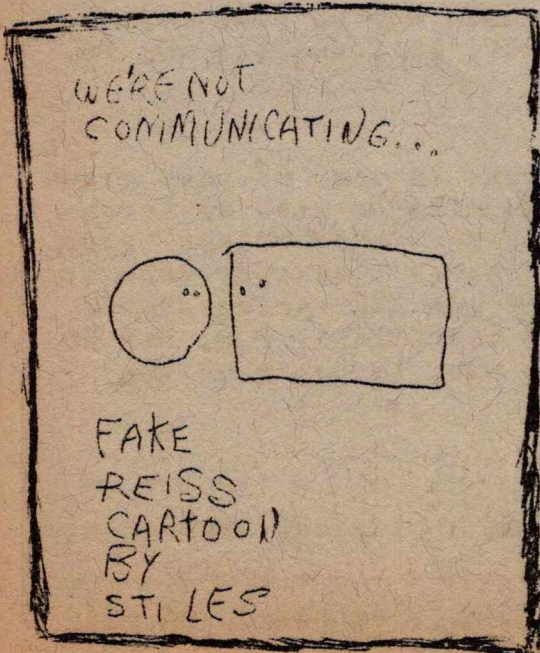 WE'RE NOT
COMMUNICATING...
FAKE
REISS
CARTOON
BY
STILES